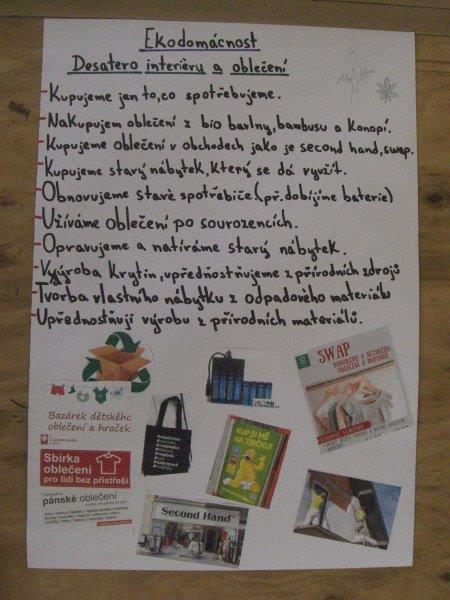 Ekodomácnost
Desatero interiéru a oblečení
-Kupujeme jen to,co spotřebujeme.
-Nakupujem oblečení z bio bavlny,bambusu a Konopí.
-Kupujeme oblečení v obchodech jako je second hand,swap.
-Kupujeme starý nábytek,který se dá využít.
-Obnovujeme staré spotřebiče(př.dobijíme baterie)
-Užíváme oblečení po sourozencích.
-Opravujeme a natíráme starý nábytek.
-Výroba Krytin,upřednostňujeme z přírodních zdrojů
-Tvorba vlastního nábytku z odpadového materiálu
-Upřednostňují výrobu z přírodních materiálů.
Bazárek dětského
oblečení a hraček
Sbírka
oblečení
pro lidi bez přístřeší
pánské oblečení
KUP SI MĚ
NA TRIČKU!
SWAP
DÁMSKÉHO A DĚTSKÉHO
OBLEČENÍ A DOPLŇKŮ
Second Hand